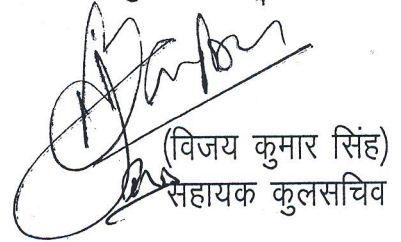 (विजय कुमार सिंह)
सहायक कुलसचिव